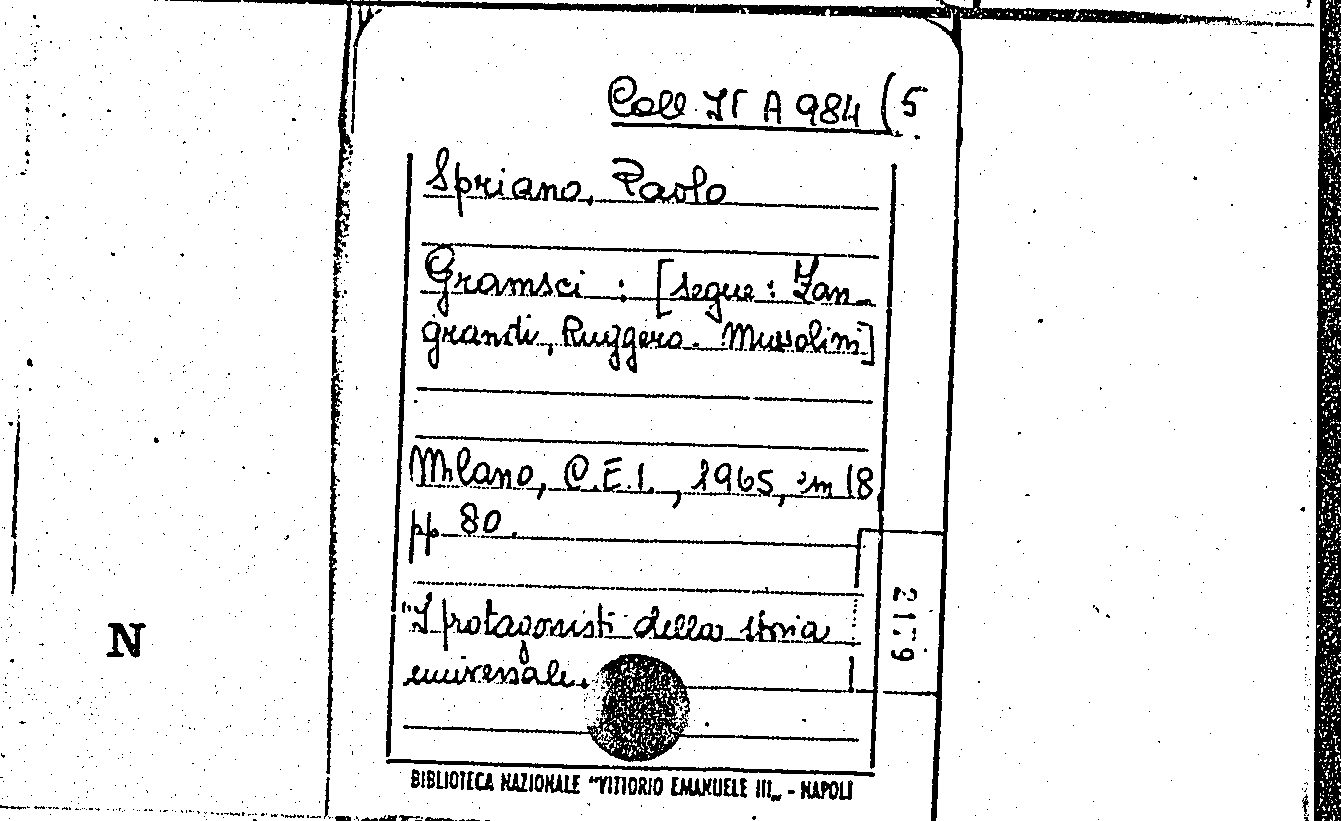 Coll. It A 984 (5.
Spriano, Paolo
Gramsci : [segue : Zan-
grandi, Ruggero. Mussolini]
Milano, C.E.I., 1965, in 18
pp. 80.
"I protagonisti della storia
universale.
2179
N
BIBLIOTECA NAZIONALE "VITTORIO EMANUELE III„ - NAPOLI